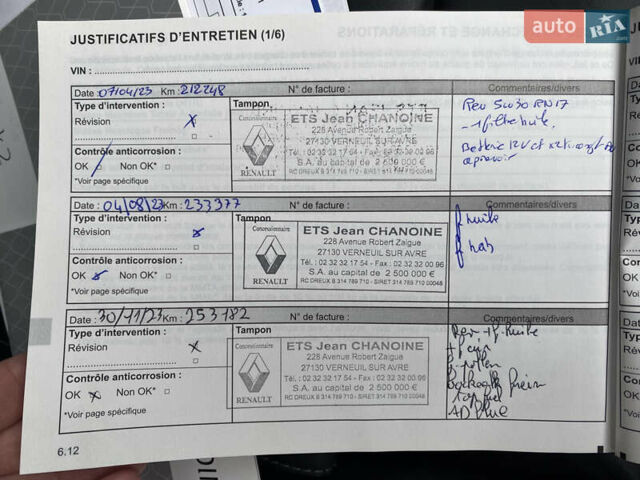 auto RIA
.com
JUSTIFICATIFS D'ENTRETIEN (1/6)
VIN :
Date : 07/04/23 Km : 212248 N° de facture : Commentaires/divers
Type d'intervention : Tampon
Révision X
Contrôle anticorrosion :
OK Non OK*
*Voir page spécifique
Concessionnaire
RENAULT
ETS Jean CHANOINE
228 Avenue Robert Zaigue
27130 VERNEUIL SUR AVRE
Tél. : 02 32 32 17 54 - Fax : 02 32 32 00 96
S.A. au capital de 2 500 000 €
RC DREUX B 314 789 710 - SIRET 314 789 710 00048
Rev 5W30 RN17
Date : 04/08/23 Km : 233377 N° de facture : Commentaires/divers
Type d'intervention : Tampon
Révision X
Contrôle anticorrosion :
OK X Non OK*
*Voir page spécifique
Concessionnaire
RENAULT
ETS Jean CHANOINE
228 Avenue Robert Zaigue
27130 VERNEUIL SUR AVRE
Tél. : 02 32 32 17 54 - Fax : 02 32 32 00 96
S.A. au capital de 2 500 000 €
RC DREUX B 314 789 710 - SIRET 314 789 710 00048
f huile
f hab
Date : 30/11/23 Km : 253182 N° de facture : Commentaires/divers
Type d'intervention : Tampon
Révision X
Contrôle anticorrosion :
OK X Non OK*
*Voir page spécifique
Concessionnaire
RENAULT
ETS Jean CHANOINE
228 Avenue Robert Zaigue
27130 VERNEUIL SUR AVRE
Tél. : 02 32 32 17 54 - Fax : 02 32 32 00 96
S.A. au capital de 2 500 000 €
RC DREUX B 314 789 710 - SIRET 314 789 710 00048
Rev + f. huile
frein
AD blue
6.12